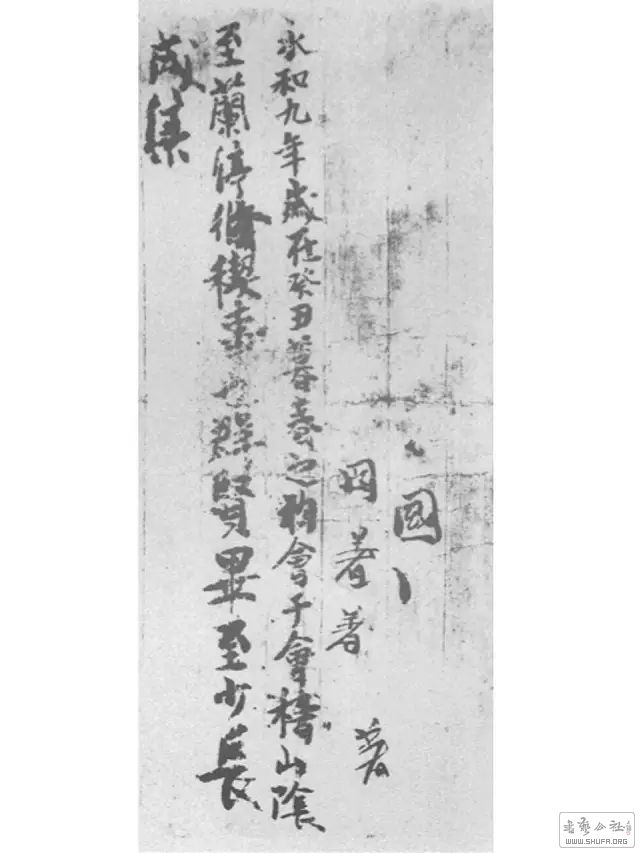 國
著著
著
永和九年歲在癸丑暮春之初會于會稽山陰
至蘭渟脩稧事也群賢畢至少長
咸集
書藝公社
WWW.SHUFA.ORG